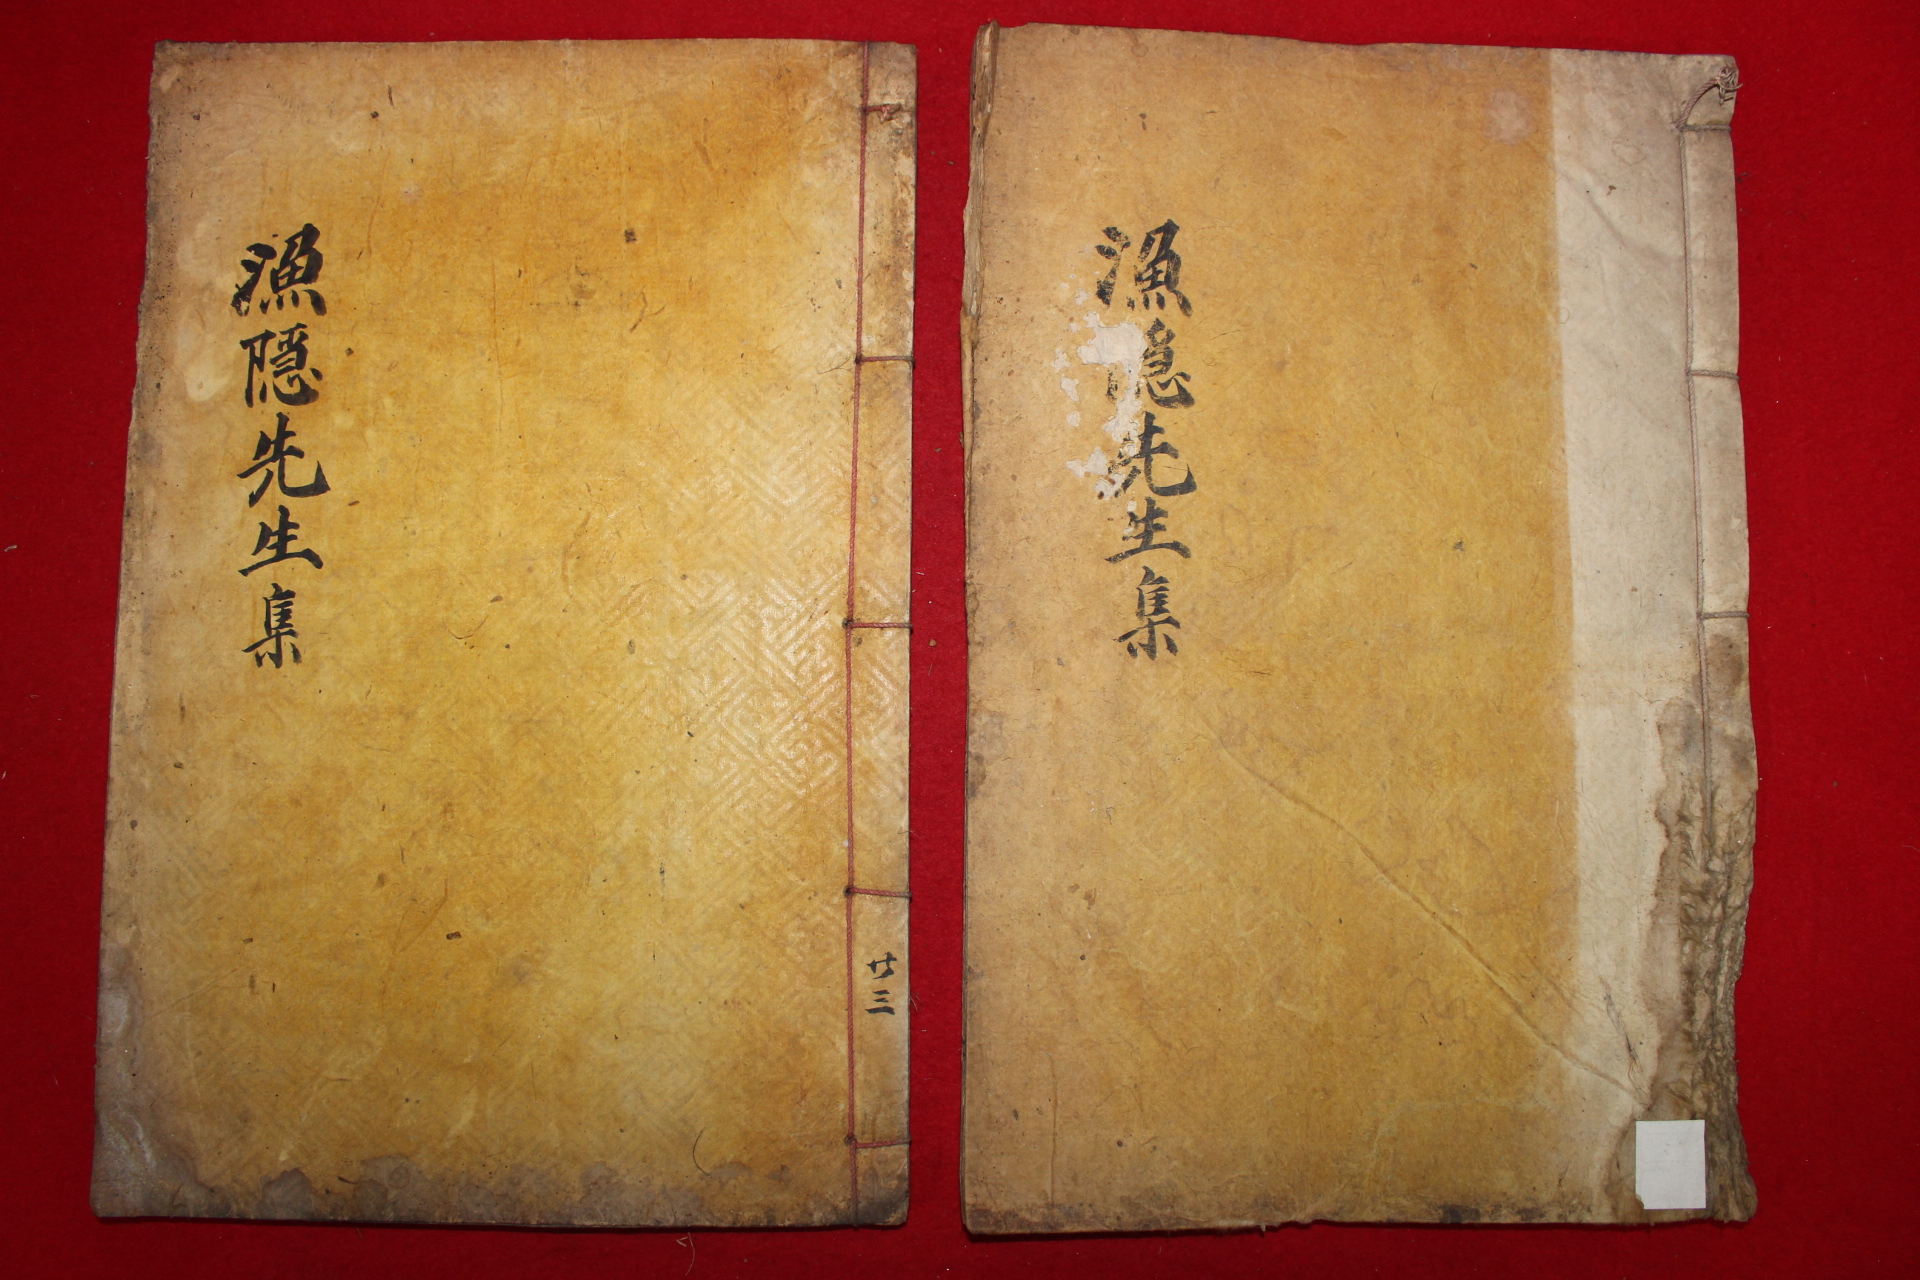 漁隱先生集
廿三
漁隱先生集